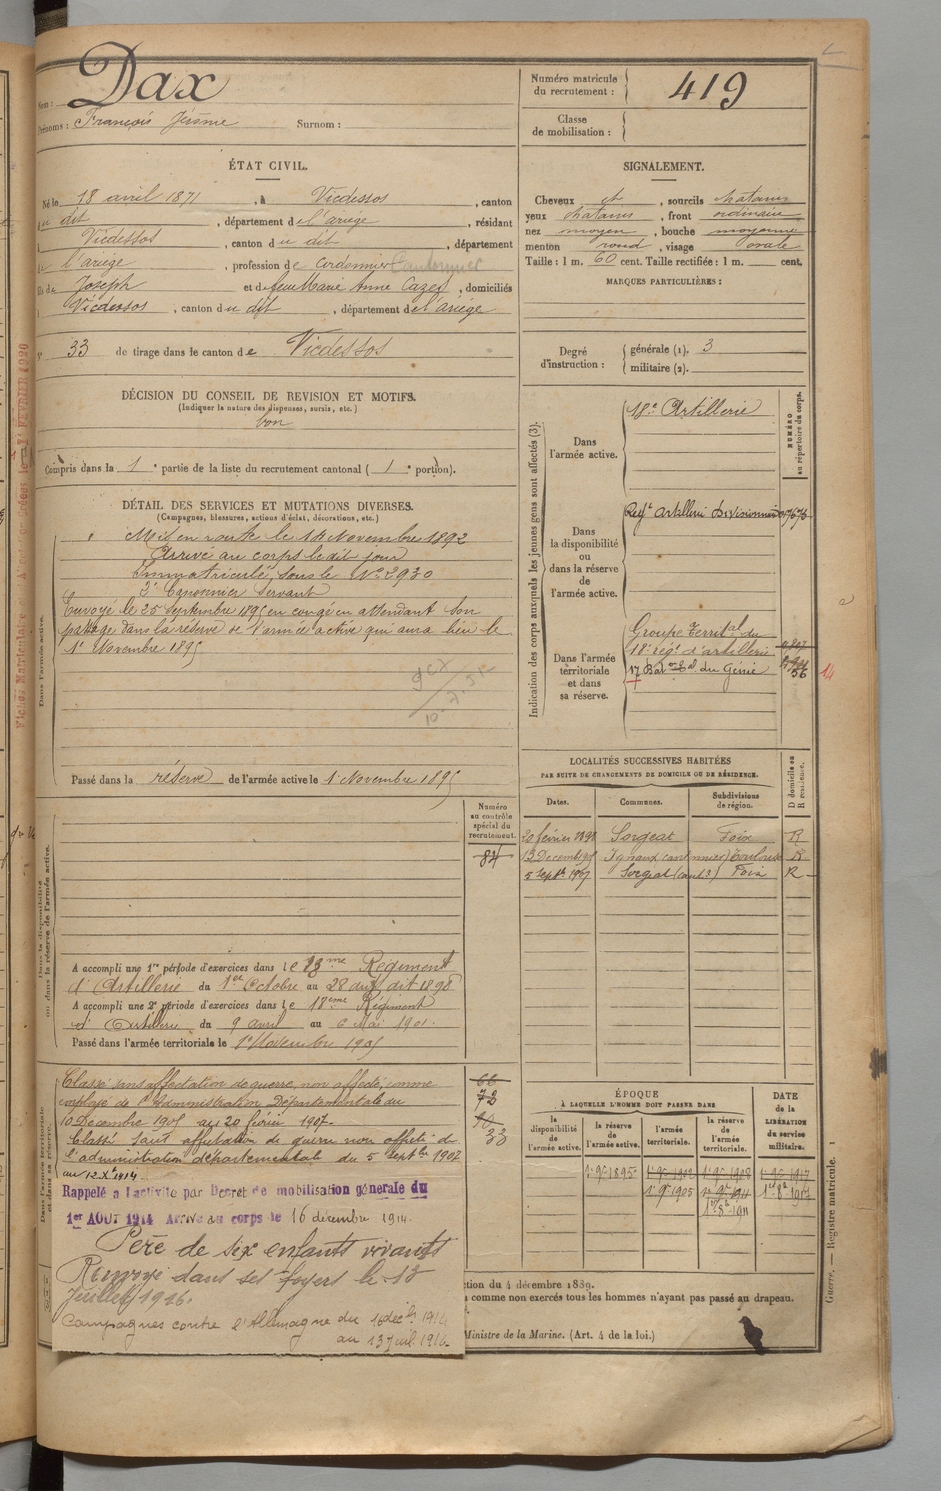 Nom : Dax
Prénoms : François Jérôme Surnom :
Numéro matricule du recrutement : 419
Classe de mobilisation :
ÉTAT CIVIL.
Né le 18 avril 1871, à Vicdessos, canton
du dit, département de l'ariège, résidant
à Vicdessos, canton du dit, département
de l'ariège, profession de Cordonnier Cantonnier
fils de Joseph et de feue Marie Anne Cazes, domiciliés
à Vicdessos, canton du dit, département de l'ariège
N° 33 de tirage dans le canton de Vicdessos
SIGNALEMENT.
Cheveux et, sourcils chatains
yeux chatains, front ordinaire
nez moyen, bouche moyenne
menton rond, visage ovale
Taille : 1 m. 60 cent. Taille rectifiée : 1 m. cent.
MARQUES PARTICULIÈRES :
Degré d'instruction : générale (1). 3
militaire (2).
DÉCISION DU CONSEIL DE REVISION ET MOTIFS.
(Indiquer la nature des dispenses, sursis, etc.)
bon
Compris dans la 1e partie de la liste du recrutement cantonal (1e portion).
DÉTAIL DES SERVICES ET MUTATIONS DIVERSES.
(Campagnes, blessures, actions d'éclat, décorations, etc.)
Dans l'armée active.
Mis en route le 14 Novembre 1892
Arrivé au corps le dit jour
Immatriculé sous le N° 2930
2e Canonnier servant
Envoyé le 25 Septembre 1895 en congé en attendant son
passage dans la réserve de l'armée active qui aura lieu le
1er Novembre 1895
Passé dans la réserve de l'armée active le 1er Novembre 1895
Indication des corps auxquels les jeunes gens sont affectés (3).
NUMÉRO au répertoire du corps.
Dans l'armée active.
18e Artillerie
Dans la disponibilité ou dans la réserve de l'armée active.
Regt artillerie Divisionnaire
Dans l'armée territoriale et dans sa réserve.
Groupe Territal du
18e regt d'artillerie
17 Baton Tal du Génie 56
14
LOCALITÉS SUCCESSIVES HABITÉES
PAR SUITE DE CHANGEMENTS DE DOMICILE OU DE RÉSIDENCE.
Dates. Communes. Subdivisions de région. D domicile ou R résidence.
20 février 1898 Sorgeat Foix R
13 Décembre 1905 Ignaux (cantonnier) Toulouse R
5 Septbre 1907 Sorgeat (cant.) Foix R
Numéro au contrôle spécial du recrutement.
84
Dans la disponibilité ou dans la réserve de l'armée active.
A accompli une 1re période d'exercices dans le 18me Régiment
d'Artillerie du 1er Octobre au 28 dudit 1898
A accompli une 2e période d'exercices dans le 18eme Régiment
d'Artillerie du 9 avril au 6 Mai 1901.
Passé dans l'armée territoriale le 1er Novembre 1905
Dans l'armée territoriale et dans sa réserve.
Classé sans affectation de guerre, non affecté, comme
employé de l'Administration Départementale du
10 Décembre 1905 au 20 février 1907.
Classé sans affectation de guerre non affecté de
l'administration départementale du 5 Septbre 1907
au 12 Xe 1914
66
72
33
Rappelé a l'activité par Decret de mobilisation générale du
1er AOUT 1914 Arrivé au corps le 16 décembre 1914.
Père de six enfants vivants
Renvoyé dans ses foyers le 13
Juillet 1916.
Campagnes contre l'Allemagne du 16 déc. 1914
au 13 juil. 1916.
ÉPOQUE
À LAQUELLE L'HOMME DOIT PASSER DANS
la disponibilité de l'armée active. la réserve de l'armée active. l'armée territoriale. la réserve de l'armée territoriale.
DATE de la LIBÉRATION du service militaire.
1er 9e 1895 1er 9e 1902 1er 9e 1908 1er 9e 1917
1er 9e 1905 1er 9e 1911 1er 8e 1917
1er 8e 1911
ction du 4 décembre 1889.
s comme non exercés tous les hommes n'ayant pas passé au drapeau.
Ministre de la Marine. (Art. 4 de la loi.)
Guerre. — Registre matricule. 1